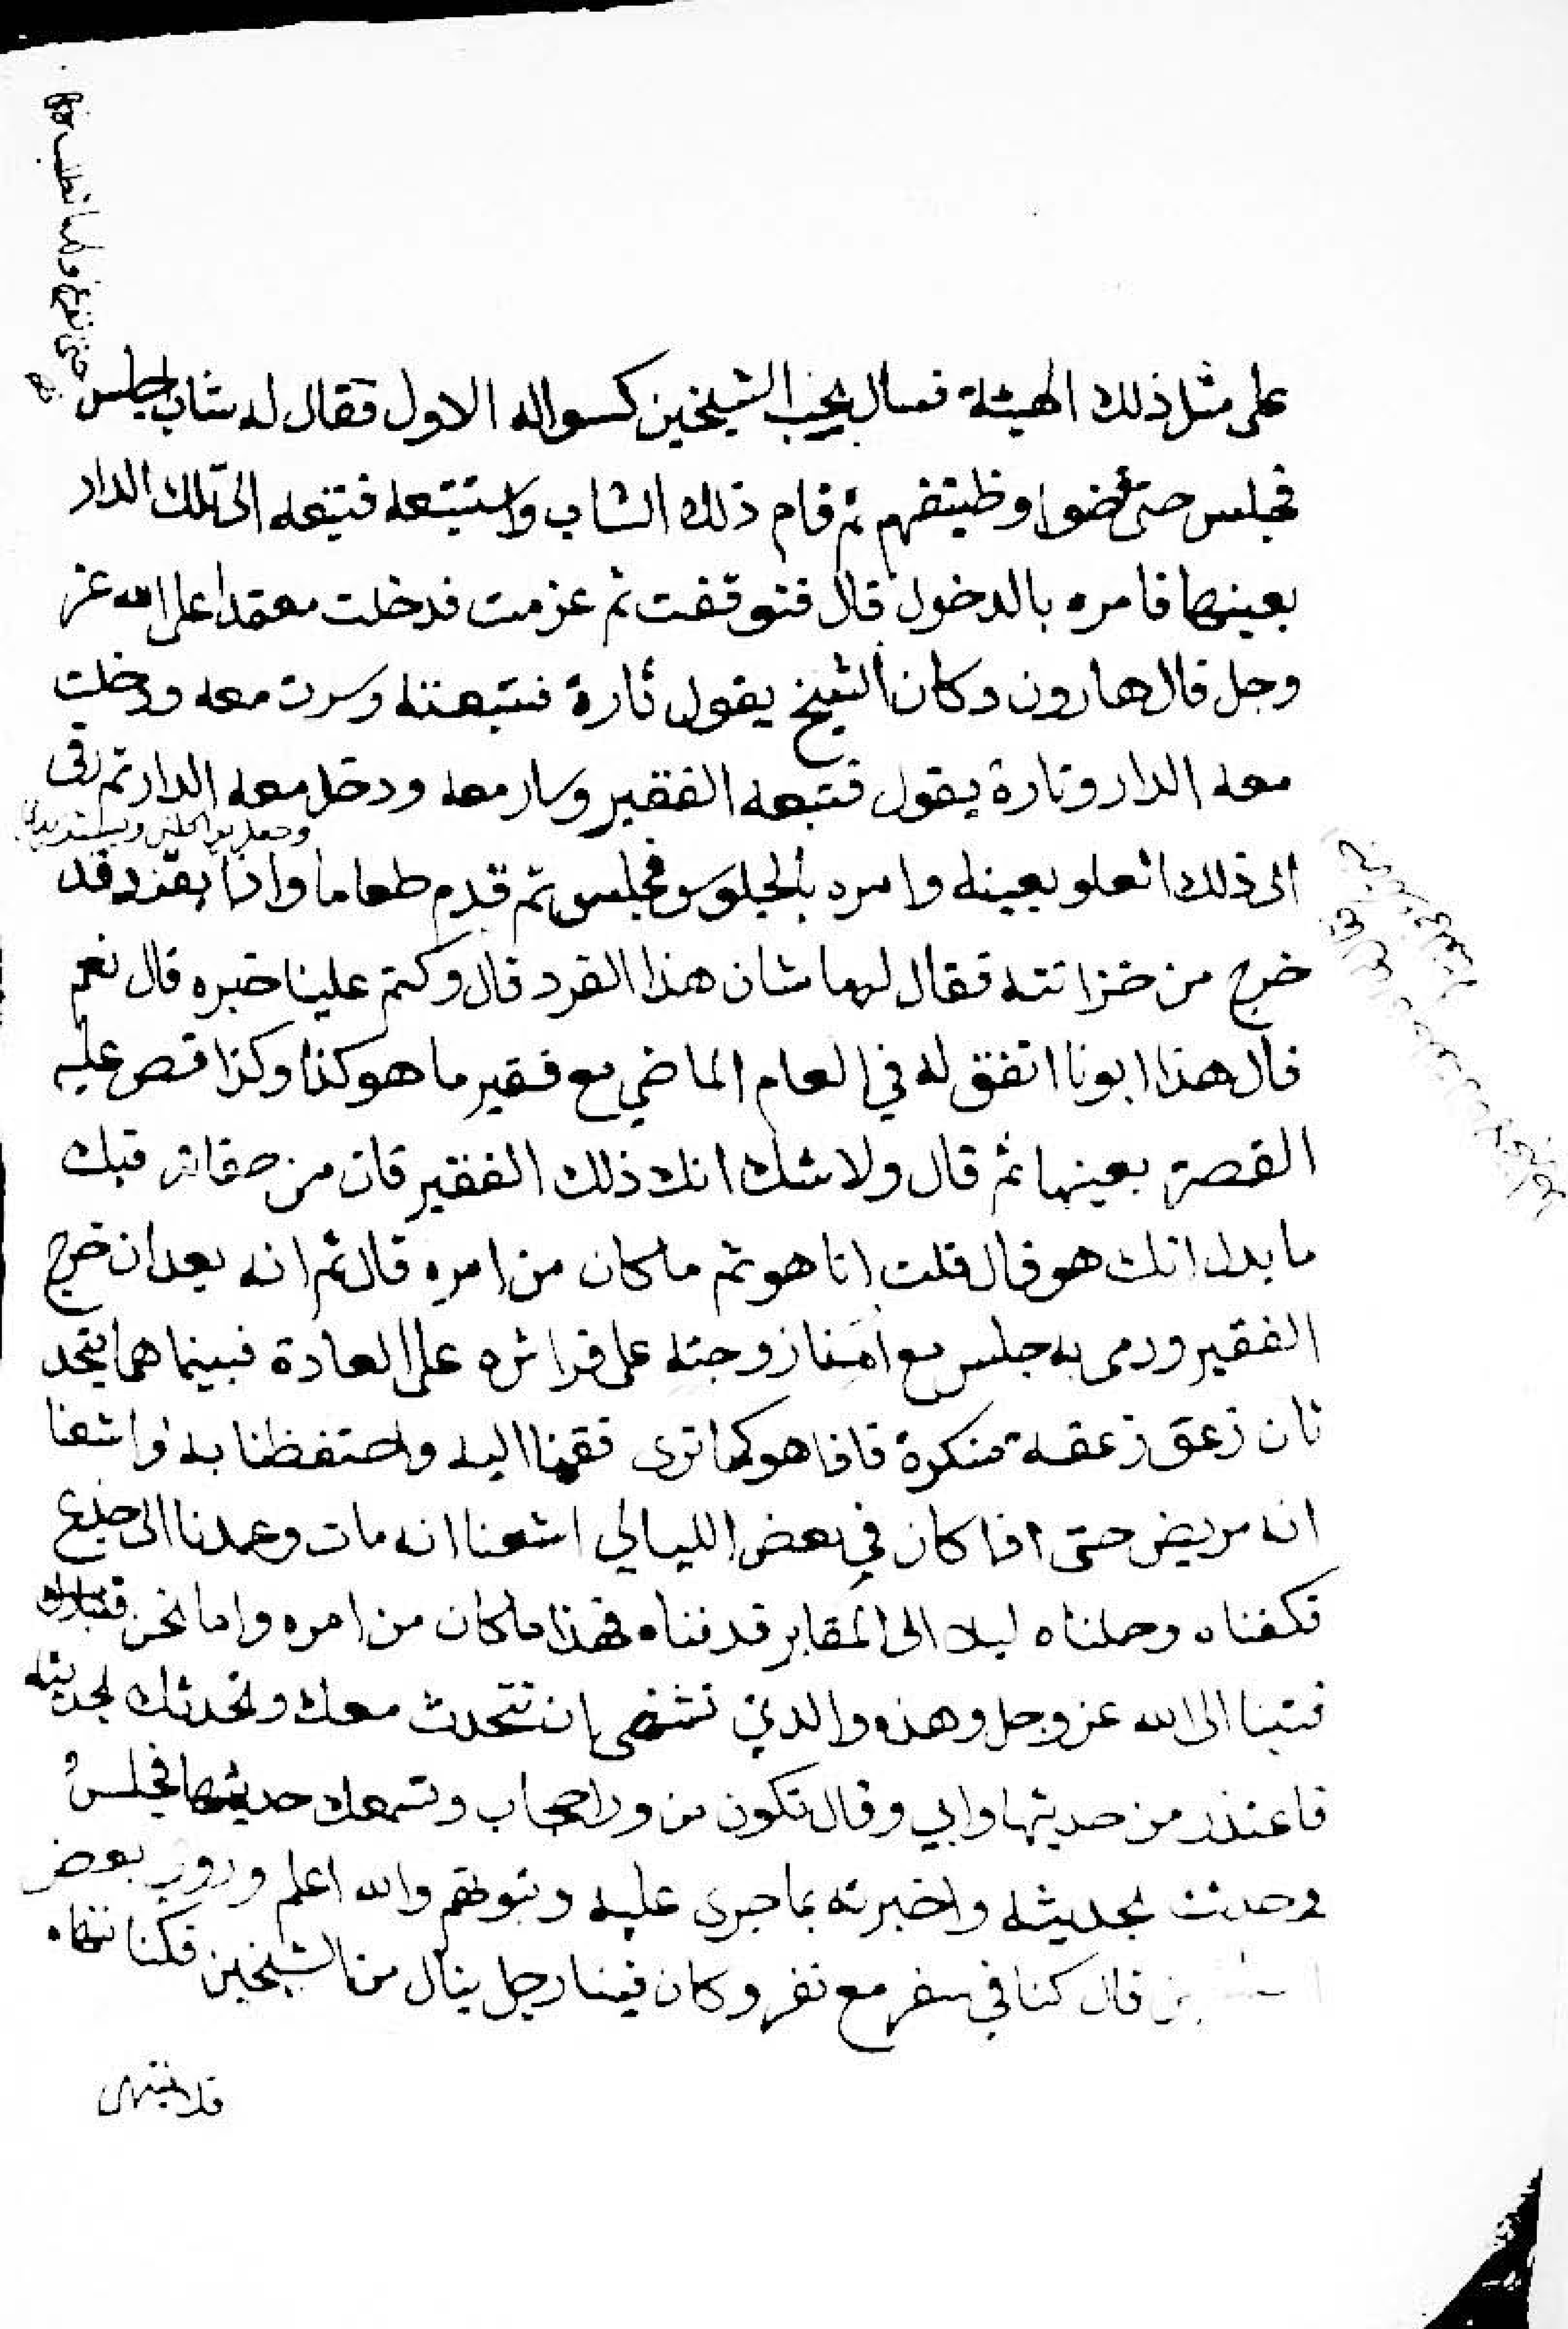 على مثل ذلك الهيئة فسال بحب الشيخين كسواله الاول فقال له شاب اجلس
حتى نفرغ ولها تطلب
فجلس حتى قضوا وظيفتهم ثم قام ذلك الشاب واستتبعه فتبعه الى تلك الدار
بعينها فامره بالدخول قال فتوقفت ثم عزمت فدخلت معتمدا على الله عز
وجل قال هارون وكان الشيخ يقول تارة فتبعته وسرت معه ودخلت
معه الدار وتارة يقول فتبعه الفقير وسار معه ودخل معه الدار ثم رقى
الى ذلك العلو بعينه وامره بالجلوس فجلس ثم قدم طعاما واذا بقرد قد
خرج من خزانته فقال لهما شان هذا القرد قال وكتم علينا خبره قال نعم
قال هذا ابونا اتفق له في العام الماضي مع فقير ما هو كذا وكذا قص عليه
القصة بعينها ثم قال ولا شك انك ذلك الفقير فان من صفاته فيك
ما يدل انك هو قال قلت انا هو ثم ما كان من امره قال ثم انه بعد ان خرج
الفقير ورمى به جلس مع امنا زوجته على فراشه على العادة فبينما هما يتحد
ثان زعق زعقة منكرة فاذا هو كما ترى فقمنا اليه واحتفظنا به واشعنا
انه مريض حتى اذا كان في بعض الليالي اشعنا انه مات وعمدنا الى جذع
فكفناه وحملناه ليلا الى المقابر فدفناه فهذا ما كان من امره واما نحن
فتبنا الى الله عز وجل وهذه والدتي تشتهي ان تتحدث معك وتحدثك بحديثه
فاعتذر من حديثها وابي وقال تكون من وراء حجاب وتسمعك حديثها فجلس
وحدثت بحديثه واخبرته بما جرى عليه وتبوتهم والله اعلم وروي بعض
قال كنا في سفر مع نفر وكان فينا رجل ينال من الشيخين فكنا ننهاه
فلا ينتهى